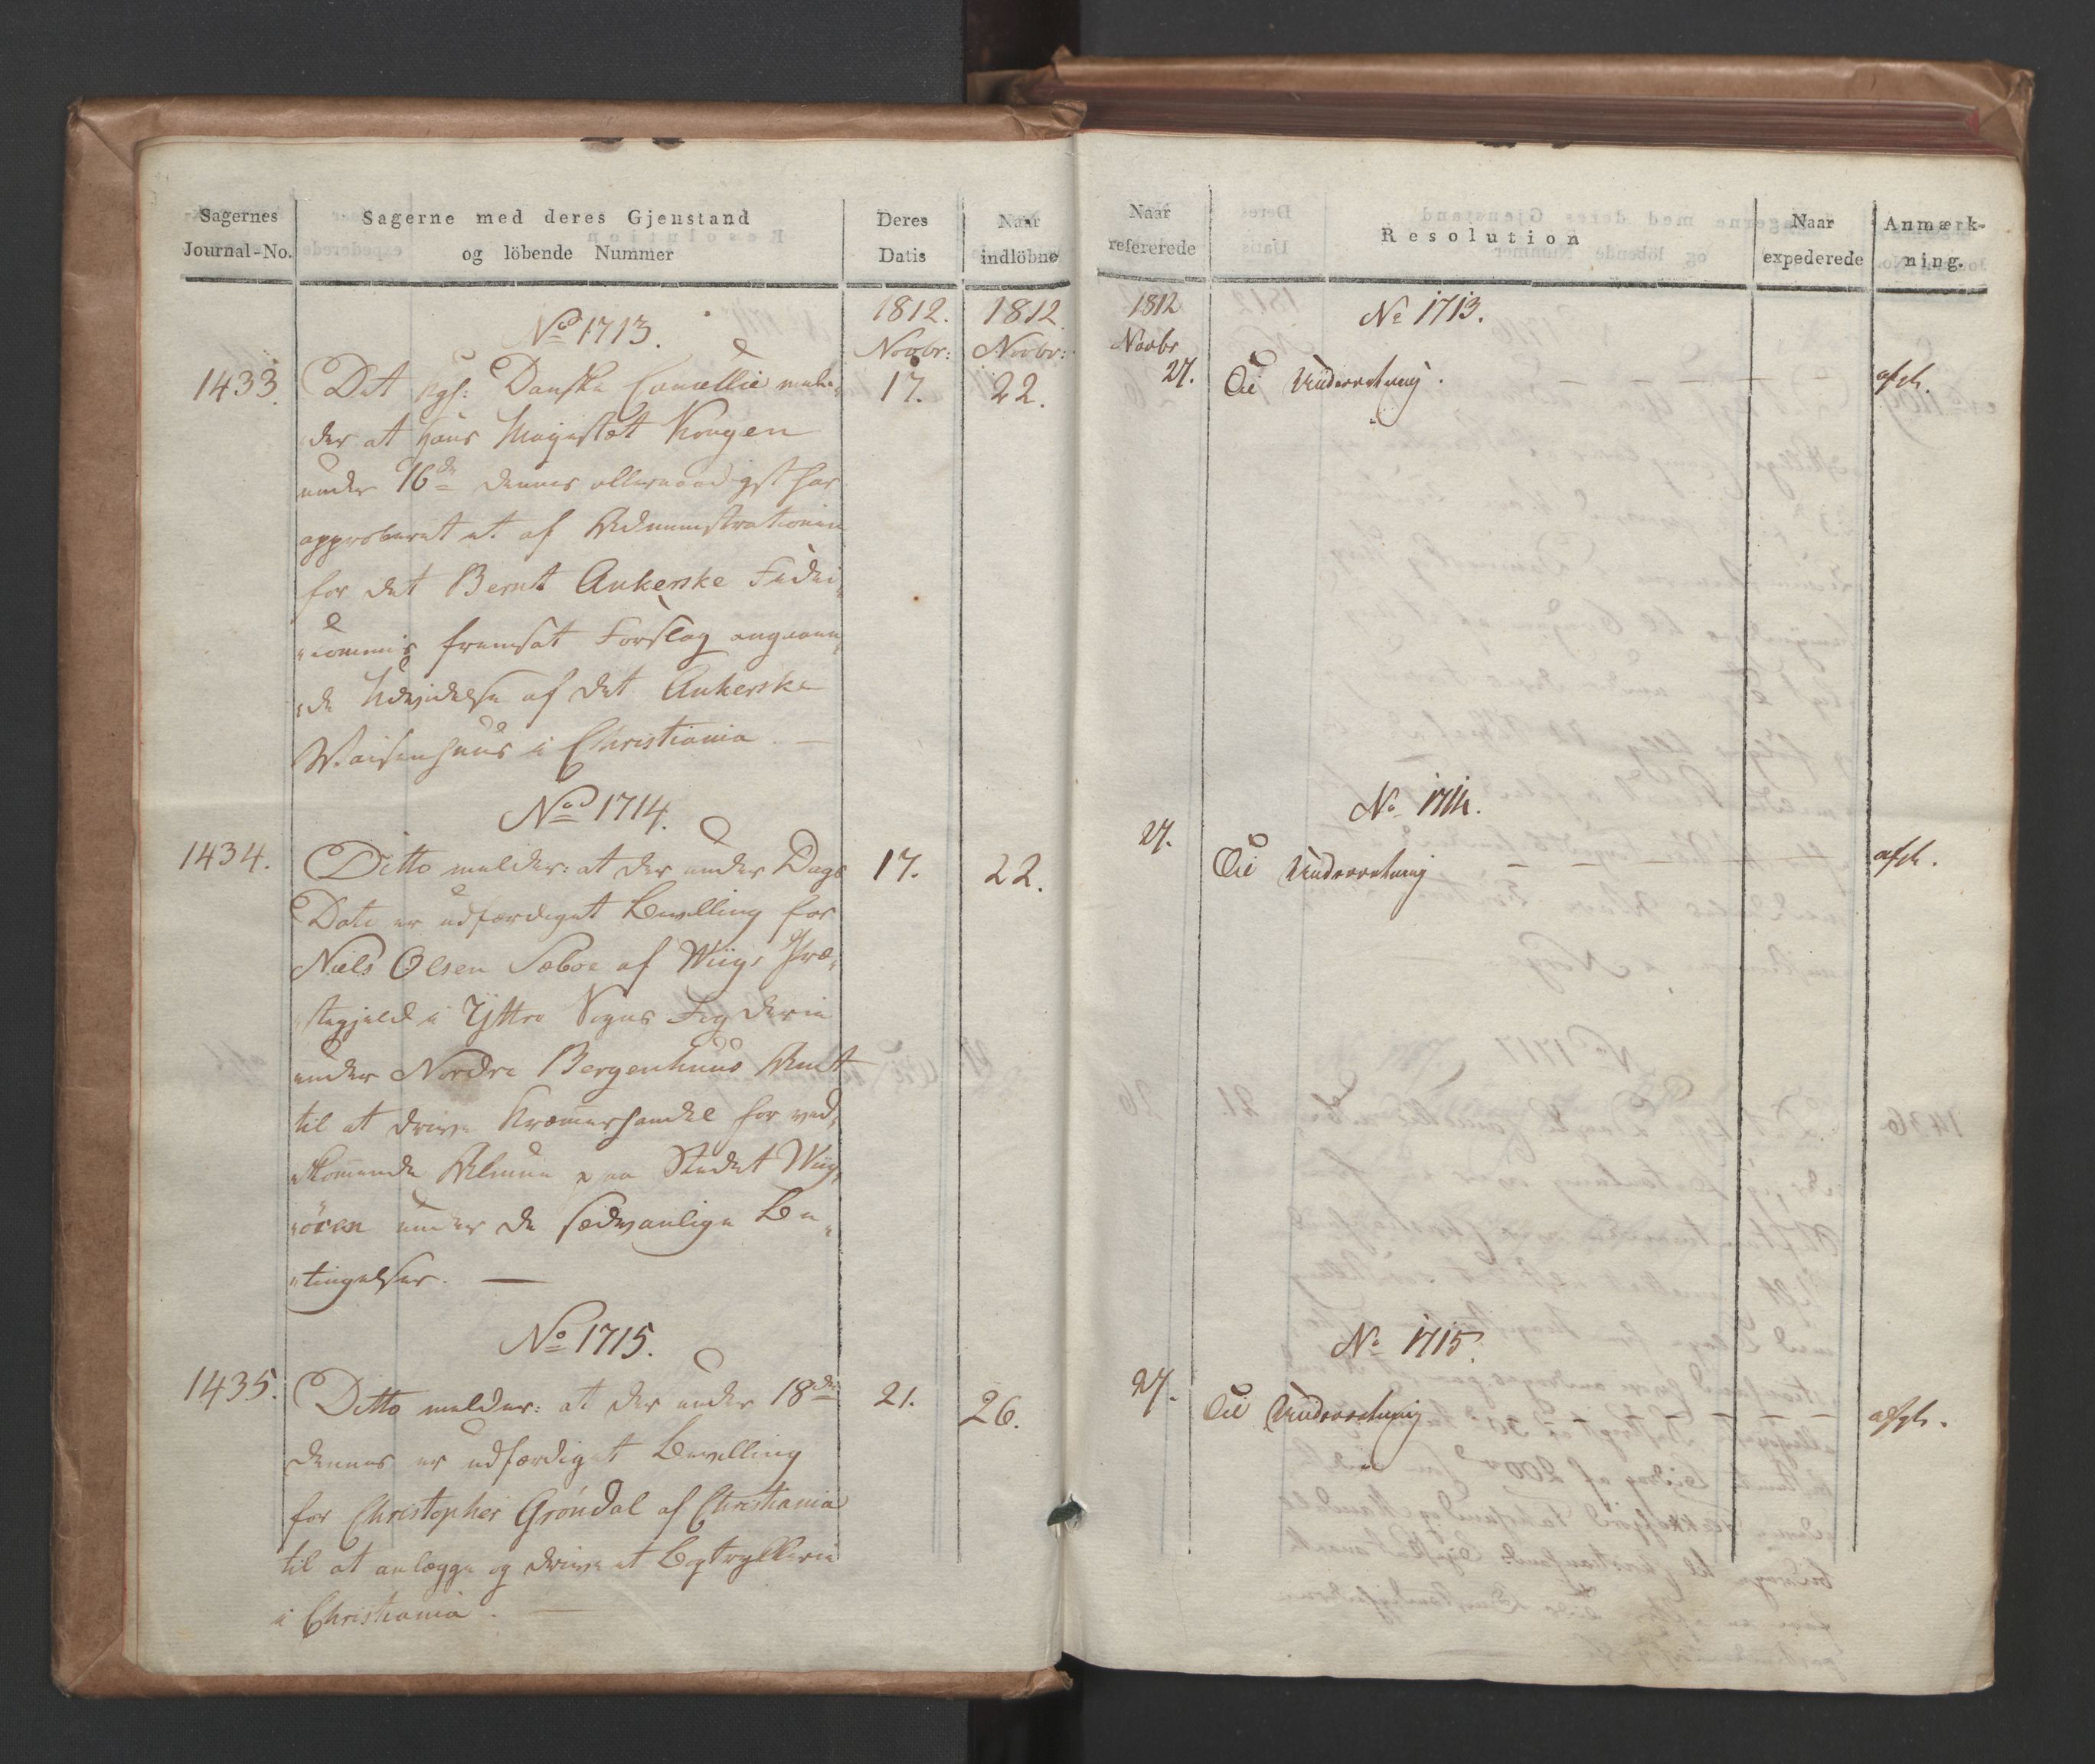 Sagernes
Journal-No.
Sagerne med deres Gjenstand
og löbende Nummer
Deres
Datis
Naar
indlöbne
1812.
Novbr:
1812.
Novbr:
No 1713.
1433.
Det kgl: Danske Cancellie mel-
der at Hans Majestæt Kongen
under 16de dennes allernaadigst har
approberet et af Administrationen
for det Bernt Ankerske Fidei-
commis fremsat Forslag angaaen-
de Udvidelse af det Ankerske
Waisenhuus i Christiania. —
17.
22.
No 1714.
1434.
Ditto melder: at der under Dags
Dato er udfærdiget Bevilling for
Niels Olsen Sæboe af Wiigs Præ-
stegjeld i Yttre Sogns Fogderie
under Nordre Bergenhuus Amt
til at drive Kræmmerhandel for ved-
kommende Almue paa Stedet Wiigs-
ören under de sædvanlige Be-
tingelser. —
17.
22.
No 1715.
1435.
Ditto melder: at der under 18de
dennes er udfærdiget Bevilling
for Christopher Gröndal af Christiania
til at anlægge og drive et Bogtrykkerie
i Christiania. —
21.
26.
Naar
refererede
Resolution
Naar
expederede
Anmærk-
ning.
1812
Novbr
No 1713.
27.
Til Underretning.
afgh.
No 1714.
27.
Til Underretning
afgh.
No 1715.
27.
Til Underretning
afgh.